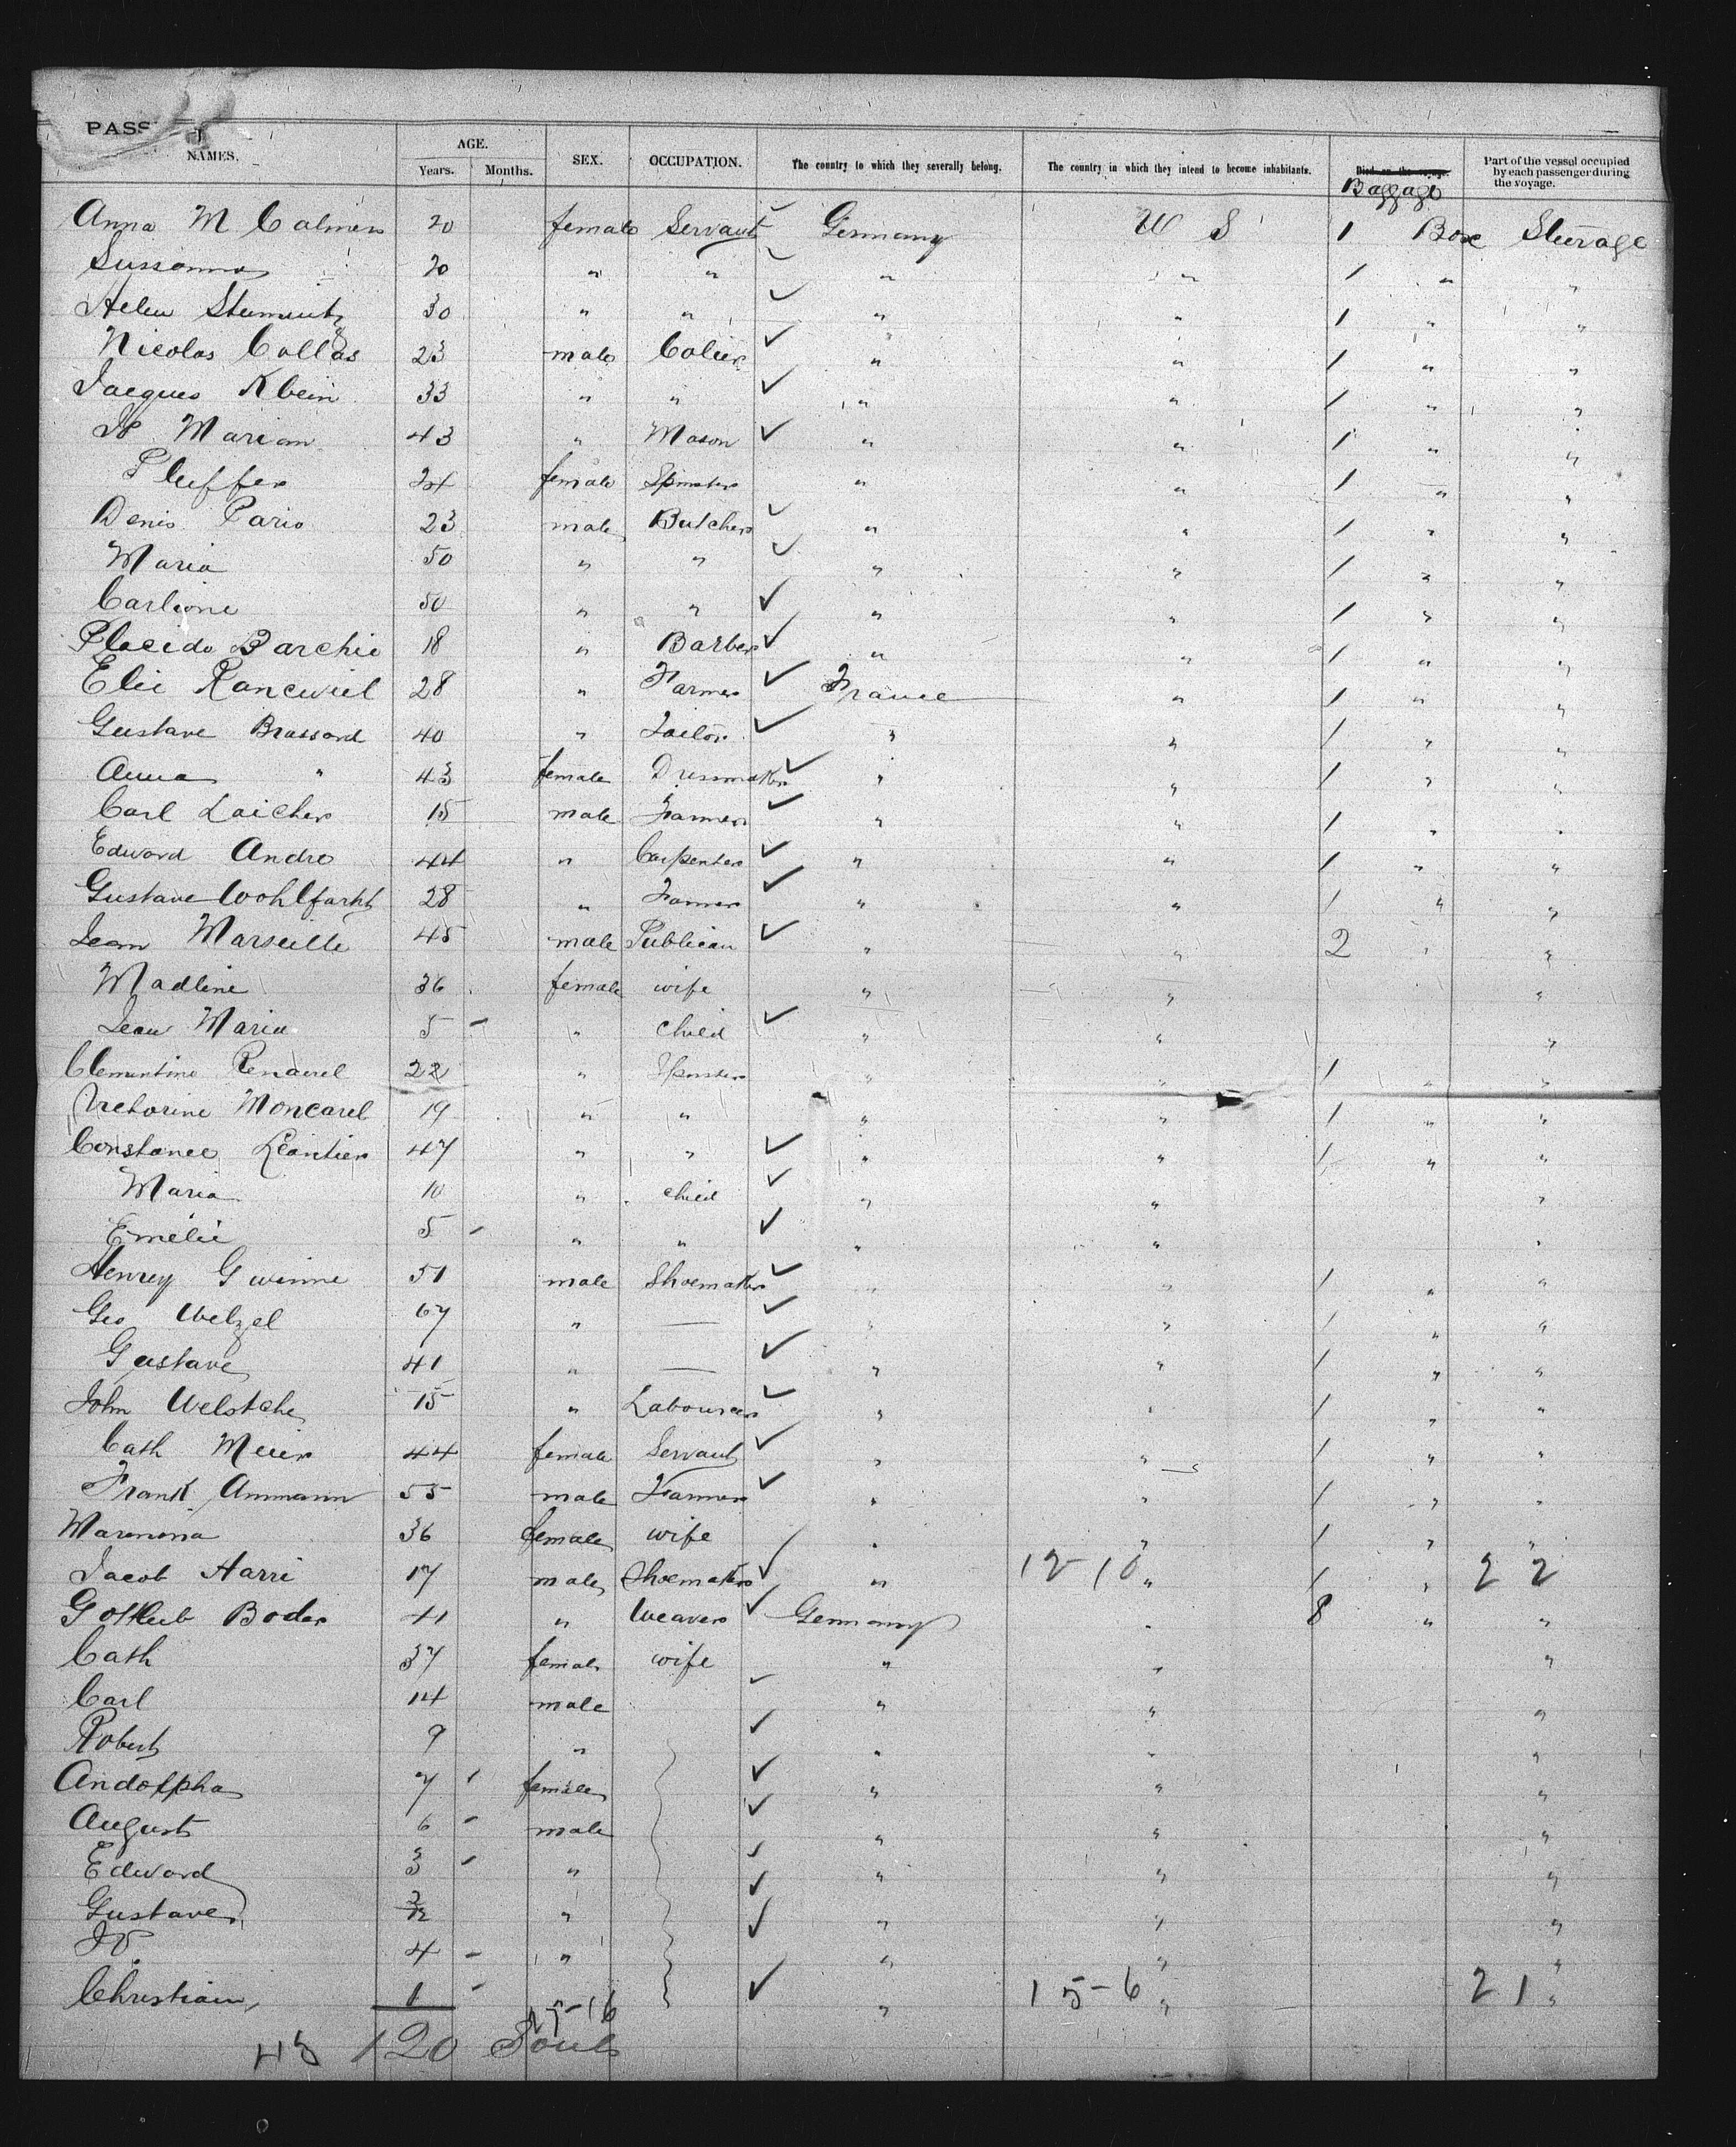 PASS
NAMES. AGE. Years. Months. SEX. OCCUPATION. The country to which they severally belong. The country in which they intend to become inhabitants. Died on the voyage. Baggage Part of the vessel occupied by each passenger during the voyage.
Anna M Calmes 20 female Servant Germany U S 1 Box Steerage
Sussanna 20 " " " " 1 " "
Helen 30 " " " " 1 " "
Nicolas Collas 23 male Colier " " 1 " "
Jacques Klein 33 " " " " 1 " "
Marian 43 " Mason " " 1 " "
24 female Spinster " " 1 " "
Denis Paris 23 male Butcher " " 1 " "
Maria 50 " " " " 1 " "
Carlione 50 " " " " 1 " "
Placido Barchie 18 " Barber " " 1 " "
Elie 28 " Farmer France " 1 " "
Gustave Brassard 40 " Tailor " " 1 " "
Anna " 43 female Dressmaker " " 1 " "
Carl Laicher 15 male Farmer " " 1 " "
Edward Andre 44 " Carpenter " " 1 " "
Gustave Wohlfarht 28 " Farmer " " 1 " "
Jean Marseille 45 male Publican " " 2 " "
Madline 36 female wife " " "
Jean Maria 5 - " child " " "
Clementine Renaurel 22 " Spinster " " 1 " "
Victorine Moncarel 19 " " " " 1 " "
Constance Leontier 47 " " " " 1 " "
Maria 10 " child " " "
Emelie 5 - " " " " "
Henrey Gwinne 51 male Shoemaker " " 1 " "
Geo Welzel 67 " — " " 1 " "
Gustave 41 " — " " 1 " "
John Welstche 15 " Labourer " " 1 " "
Cath Meier 44 female Servant " " 1 " "
Frank Ammann 55 male Farmer " " 1 " "
36 female wife " " 1 " "
Jacob Harri 17 male Shoemaker " 12-10 " 1 " 22
Gottleib Boder 41 " Weaver Germany " 8 " "
Cath 37 female wife " " "
Carl 14 male " " "
Robert 9 " " " "
Andolpha 7 female " " "
August 6 - male " " "
Edward 3 - " " " "
Gustave " " " "
4 - " " " "
Christian 1 - " 15-6 " 21 "
43 120 Souls